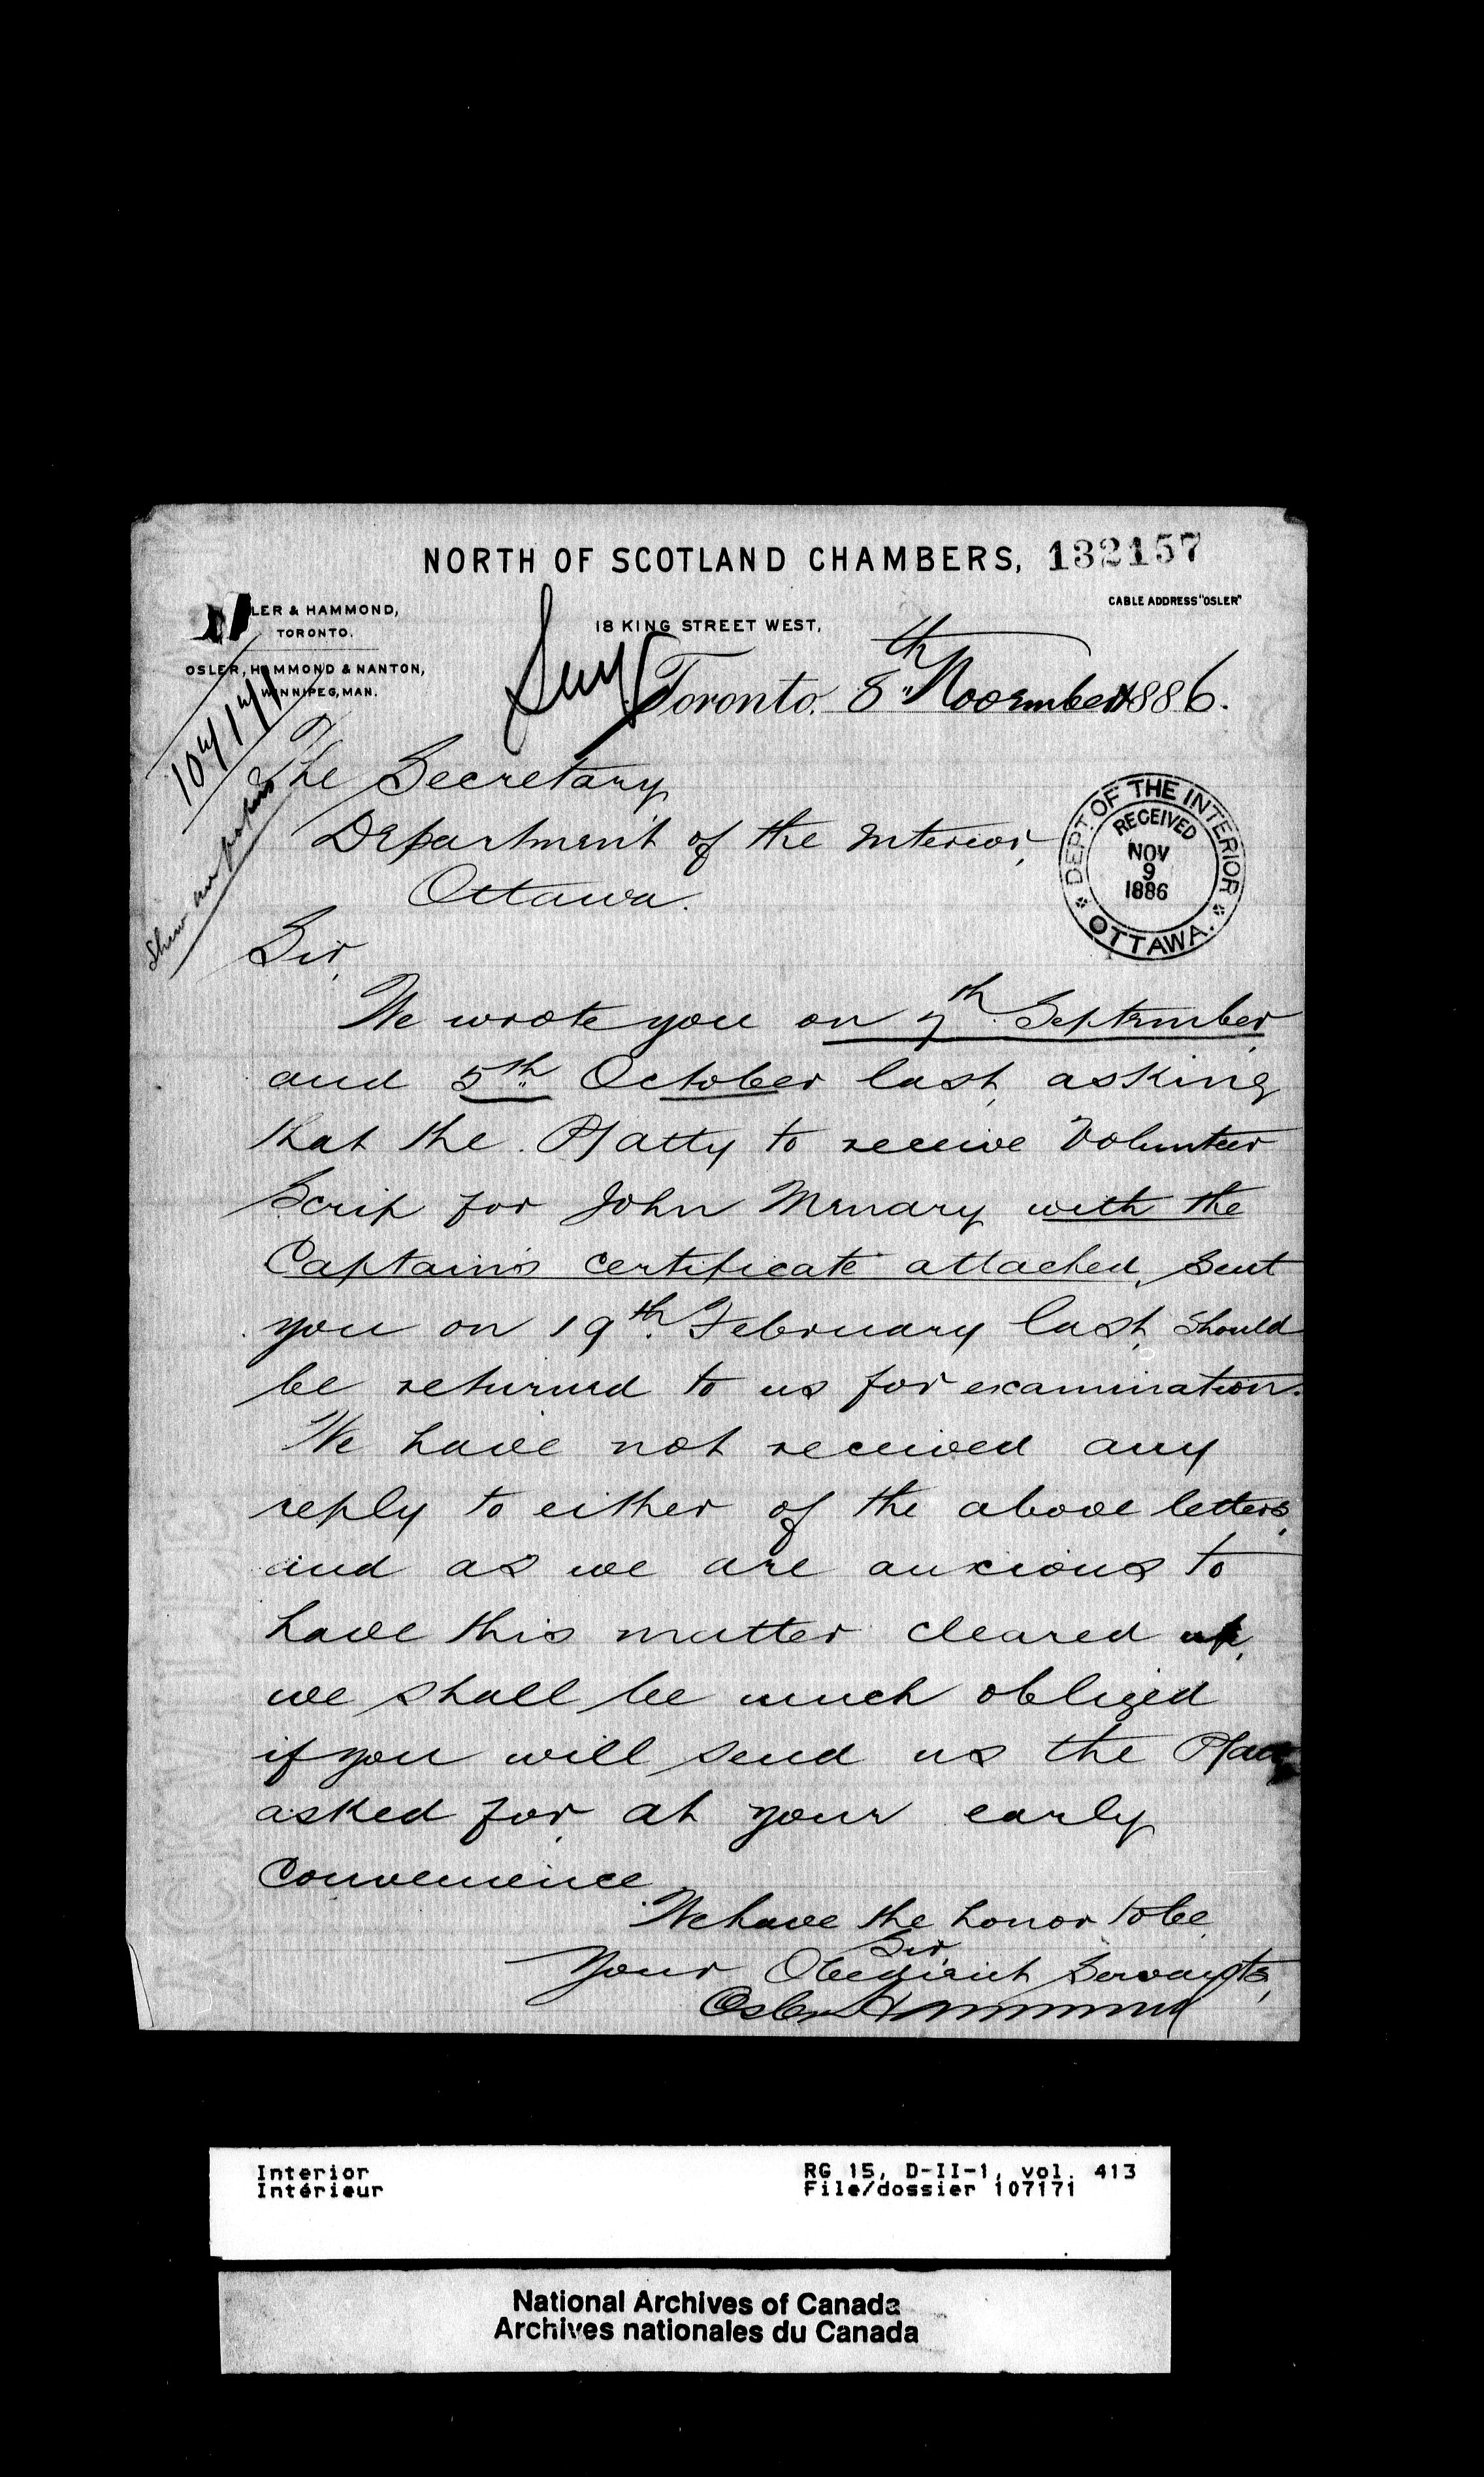 NORTH OF SCOTLAND CHAMBERS, 132157
CABLE ADDRESS "OSLER"
LER & HAMMOND,
TORONTO.
18 KING STREET WEST,
OSLER, HAMMOND & NANTON,
WINNIPEG, MAN.
Toronto, 8th November 1886.
107171
The Secretary
Department of the Interior,
Ottawa.
DEPT. OF THE INTERIOR
RECEIVED
NOV
9
1886
OTTAWA.
Sir,
We wrote you on 7th September
and 5th October last, asking
that the P/atty to receive Volunteer
Scrip for John Menary with the
Captain's certificate attached, sent
you on 19th February last, should
be returned to us for examination.
We have not received any
reply to either of the above letters,
and as we are anxious to
have this matter cleared up,
we shall be much obliged
if you will send us the
asked for, at your early
convenience.
We have the honor to be
Sir,
Your Obedient Servants,
Osler Hammond
Interior
Intérieur
RG 15, D-II-1, vol. 413
File/dossier 107171
National Archives of Canada
Archives nationales du Canada